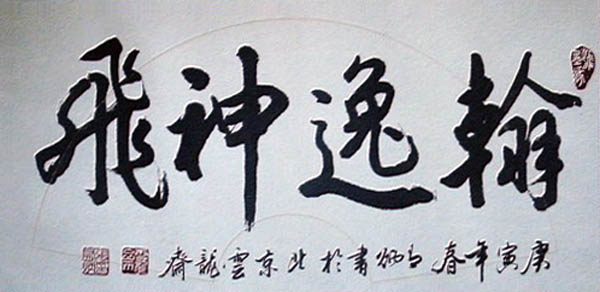 翰逸神飛
庚寅年春 炳書於北京雲龍齋